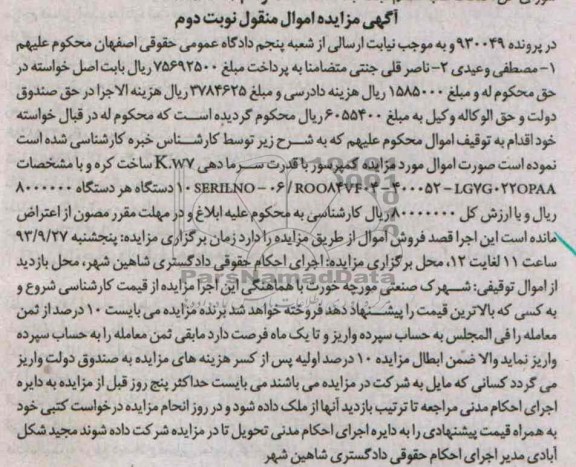 آگهی مزایده اموال منقول نوبت دوم
در پرونده ۹۳۰۰۴۹ و به موجب نیابت ارسالی از شعبه پنجم دادگاه عمومی حقوقی اصفهان محکوم علیهم
۱- مصطفی وعیدی ۲- ناصر قلی جنتی متضامنا به پرداخت مبلغ ۷۵۶۹۲۵۰۰ ریال بابت اصل خواسته در
حق محکوم له و مبلغ ۱۵۸۵۰۰۰ ریال هزینه دادرسی و مبلغ ۳۷۸۴۶۲۵ ریال هزینه الاجرا در حق صندوق
دولت و حق الوکاله وکیل به مبلغ ۶۰۵۵۴۰۰ ریال محکوم گردیده است که محکوم له در قبال خواسته
خود اقدام به توقیف اموال محکوم علیهم که به شرح زیر توسط کارشناس خبره کارشناسی شده است
نموده است صورت اموال مورد مزایده کمپرسور با قدرت سرمادهی K.W۷ ساخت کره و با مشخصات
LGYG۰۲۲۰PAA - ۴۰۰۰۵۲ - ROO۸۴VF۰۴ / ۰۶ - SERILNO ۱۰ دستگاه هر دستگاه ۸۰۰۰۰۰۰
ریال و با ارزش کل ۸۰۰۰۰۰۰۰ ریال کارشناسی به محکوم علیه ابلاغ و در مهلت مقرر مصون از اعتراض
مانده است این اجرا قصد فروش اموال از طریق مزایده را دارد زمان برگزاری مزایده: پنجشنبه ۹۳/۹/۲۷
ساعت ۱۱ لغایت ۱۲، محل برگزاری مزایده: اجرای احکام حقوقی دادگستری شاهین شهر، محل بازدید
از اموال توقیفی: شهرک صنعتی مورچه خورت با هماهنگی این اجرا مزایده از قیمت کارشناسی شروع و
به کسی که بالاترین قیمت را پیشنهاد دهد فروخته خواهد شد برنده مزایده می بایست ۱۰ درصد از ثمن
معامله را فی المجلس به حساب سپرده واریز و تا یک ماه فرصت دارد مابقی ثمن معامله را به حساب سپرده
واریز نماید والا ضمن ابطال مزایده ۱۰ درصد اولیه پس از کسر هزینه های مزایده به صندوق دولت واریز
می گردد کسانی که مایل به شرکت در مزایده می باشند می بایست حداکثر پنج روز قبل از مزایده به دایره
اجرای احکام مدنی مراجعه تا ترتیب بازدید آنها از ملک داده شود و در روز انجام مزایده درخواست کتبی خود
به همراه قیمت پیشنهادی را به دایره اجرای احکام مدنی تحویل تا در مزایده شرکت داده شوند مجید شکل
آبادی مدیر اجرای احکام حقوقی دادگستری شاهین شهر
ParsNamadData